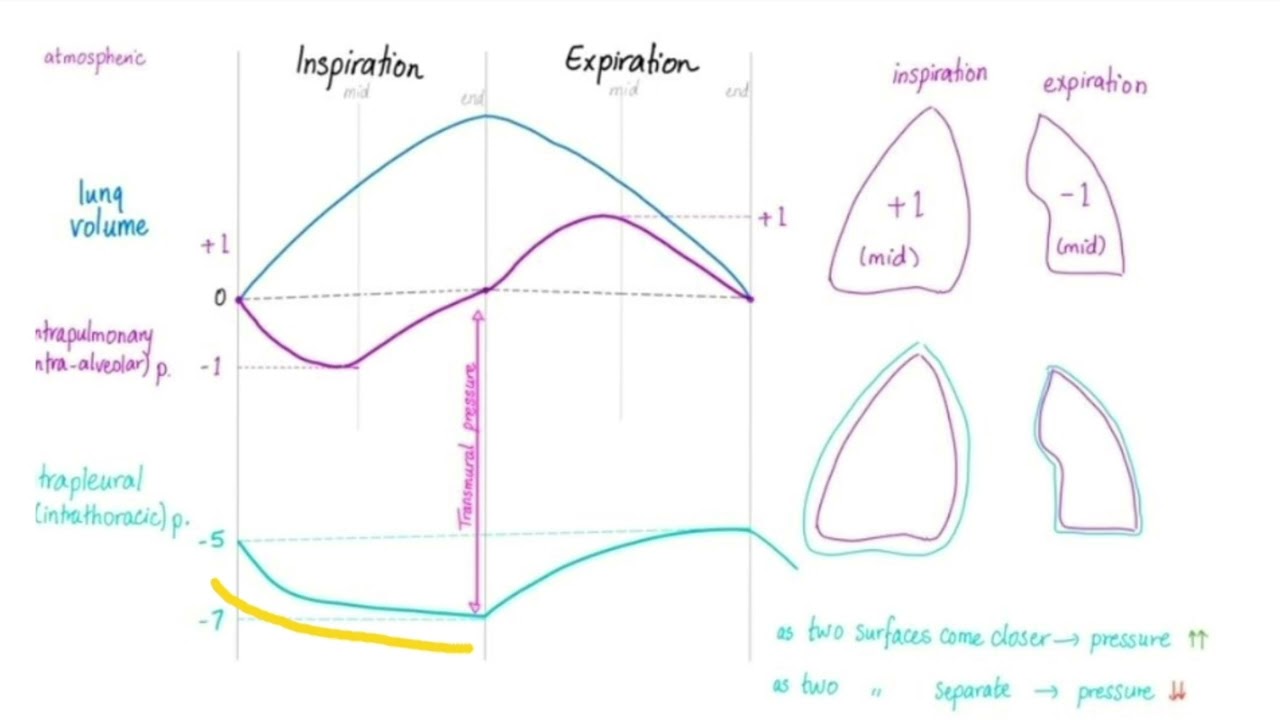 atmospheric
Inspiration
Expiration
mid
end
mid
end
inspiration
expiration
lung
volume
+1
+1
+1
(mid)
-1
(mid)
0
ntrapulmonary
ntra-alveolar) p.
-1
Transmural pressure
trapleural
(intrathoracic) p.
-5
-7
as two surfaces come closer → pressure ⇈
as two " separate → pressure ⇊